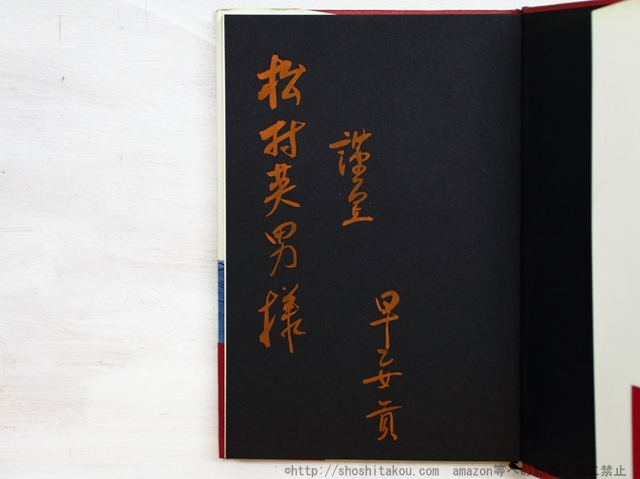 松村英男様
謹呈
早乙女貢
©http://shoshitakou.com amazon等への転載・加工禁止